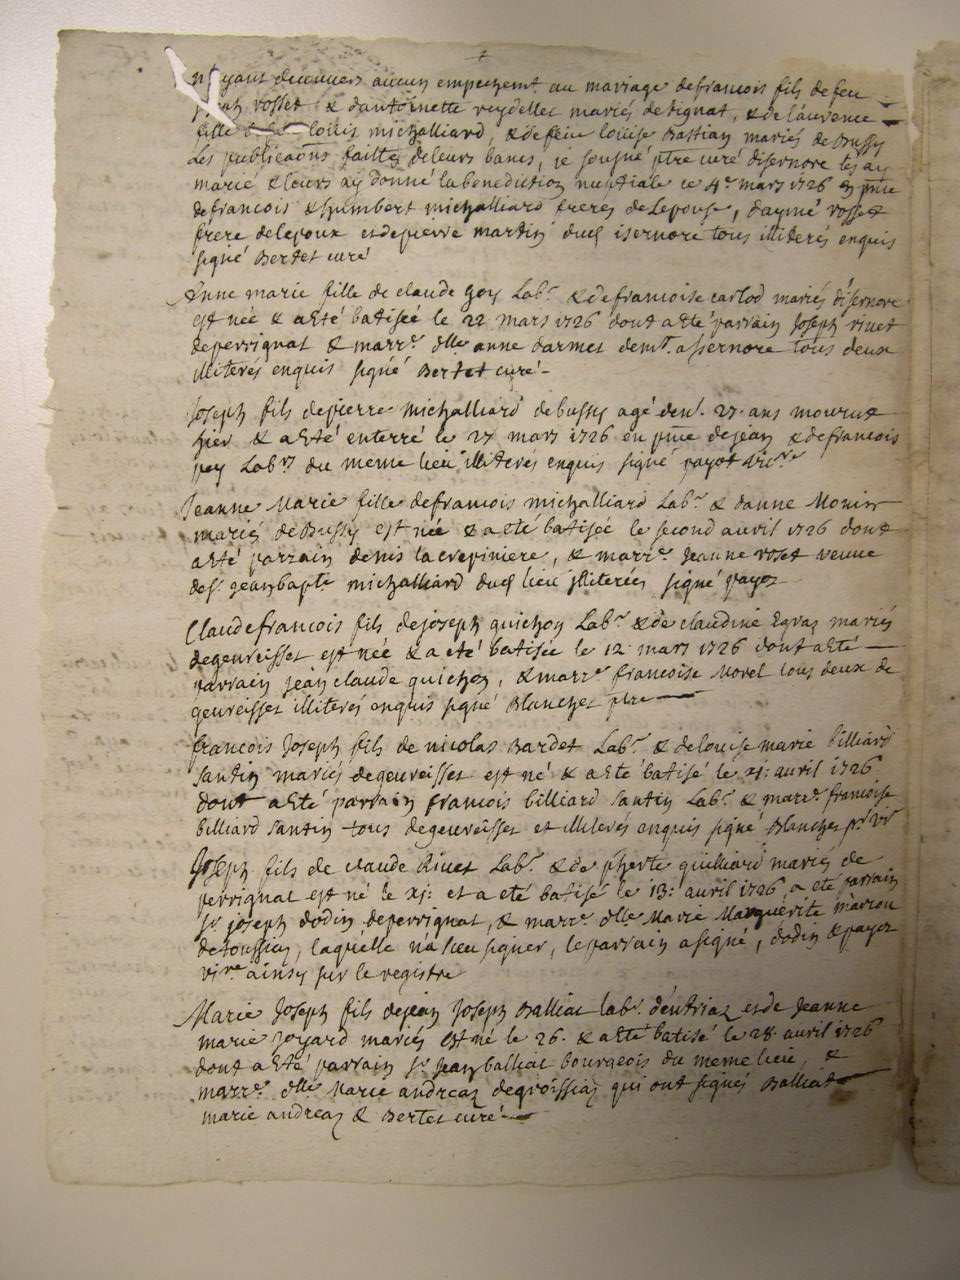 n'ayant decouvers aucun empechemt au mariage de francois fils de feu
joseph rosset & d'antoinette reydellet mariés de signat, & de laurence
fille louis michalliard, & de feue louise Bastian mariés de Bussy
Les publicaõns faittes de leurs bancs, je sousné ptre curé disernore les ay
marié & leurs ay donné la benediction nuptiale ce 4e mars 1726 en pñce
de francois & humbert michalliard freres de Lepouse, d'aymé rosset
frere de lepoux et de pierre martin dud isernore tous illiterés enquis
signé Bertet curé
Anne marie fille de claude goy Labr & de francoise carlod mariés disernore
est née & a eté batisée le 22 mars 1726 dont a eté parrain Joseph rivet
de perrignat & marre dlle anne darmet demt. a isernore tous deux
illiterés enquis signé Bertet curé
Joseph fils de pierre Michalliard de bussy agé denv. 27 ans mourut
hier & a eté enterré le 27 mars 1726 en pñce de jean & de francois
pey Labrs du meme lieu illiterés enquis signé payot vicre
Jeanne Marie fille de francois michalliard Labr & danne Monier
mariés de Bussy est née & a eté batisée le second avril 1726 dont
a eté parrain denis lacrepiniere, & marre Jeanne roset veuve
de fr jean bapte michalliard dud lieu illiterés signé payot
Claude francois fils de joseph guichon Labr & de claudine Egraz mariés
de geureisset est née & a eté batisée le 12 mars 1726 dont a eté
parrain jean claude guichon, & marre francoise Morel tous deux de
geureisset illiterés enquis signé Blanchet ptre
francois Joseph fils de nicolas Bardet Labr & de louise marie billiard
santin mariés de geureisset est né & a eté batisé le xi: avril 1726
dont a eté parrain francois billiard santin Labr & marre francoise
billiard santin tous de geureisset et illiterés enquis signé Blanchet
Joseph fils de claude Rivet Labr & de pherte guilliard mariés de
perrignat est né le xj: et a eté batisé le 13: avril 1726 a eté parrain
sr joseph dodin de perrignat, & marre dlle Marie Marguerite marion
de toussieu, laquelle n'a sceu signer, le parrain a signé, dodin & payot
vicre ainsy sur le registre
Marie Joseph fils de jean Joseph Balliat labr d'entriaz et de Jeanne
marie joyard mariés est né le 26. & a eté batisé le 28 avril 1726
dont a eté parrain sr Jean balliat bourgeois du meme lieu, &
marre dlle Marie andreaz de groissiaz qui ont signés Balliat
marie andreaz & Bertet curé